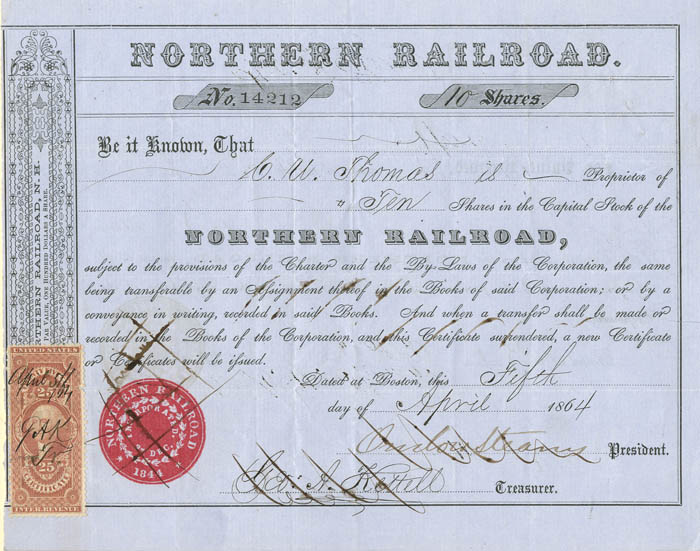 NORTHERN RAILROAD.
No. 14212
10 Shares.
Be it Known, That
C. U. Thomas is Proprietor of
" Ten Shares in the Capital Stock of the
NORTHERN RAILROAD,
subject to the provisions of the Charter and the By-Laws of the Corporation, the same
being transferable by an Assignment thereof in the Books of said Corporation; or by a
conveyance in writing, recorded in said Books. And when a transfer shall be made or
recorded in the Books of the Corporation, and this Certificate surrendered, a new Certificate
or Certificates will be issued.
Dated at Boston, this Fifth
day of April 1864
Onslow Stearns President.
Geo. A. Kettell Treasurer.
NORTHERN RAILROAD, N. H.
PAR VALUE, ONE HUNDRED DOLLARS A SHARE.
UNITED STATES
25
April 5th
1864
GAK
Tr
25
CERTIFICATE
INTER. REVENUE
NORTHERN RAILROAD
1844